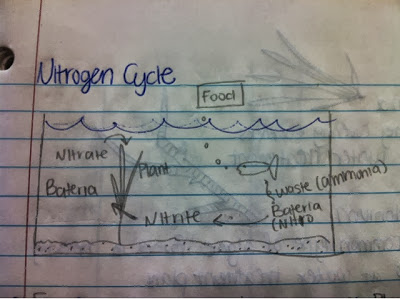 Nitrogen Cycle
Food
Nitrate
Plant
Bateria
waste (ammonia)
Bateria
Nitrite